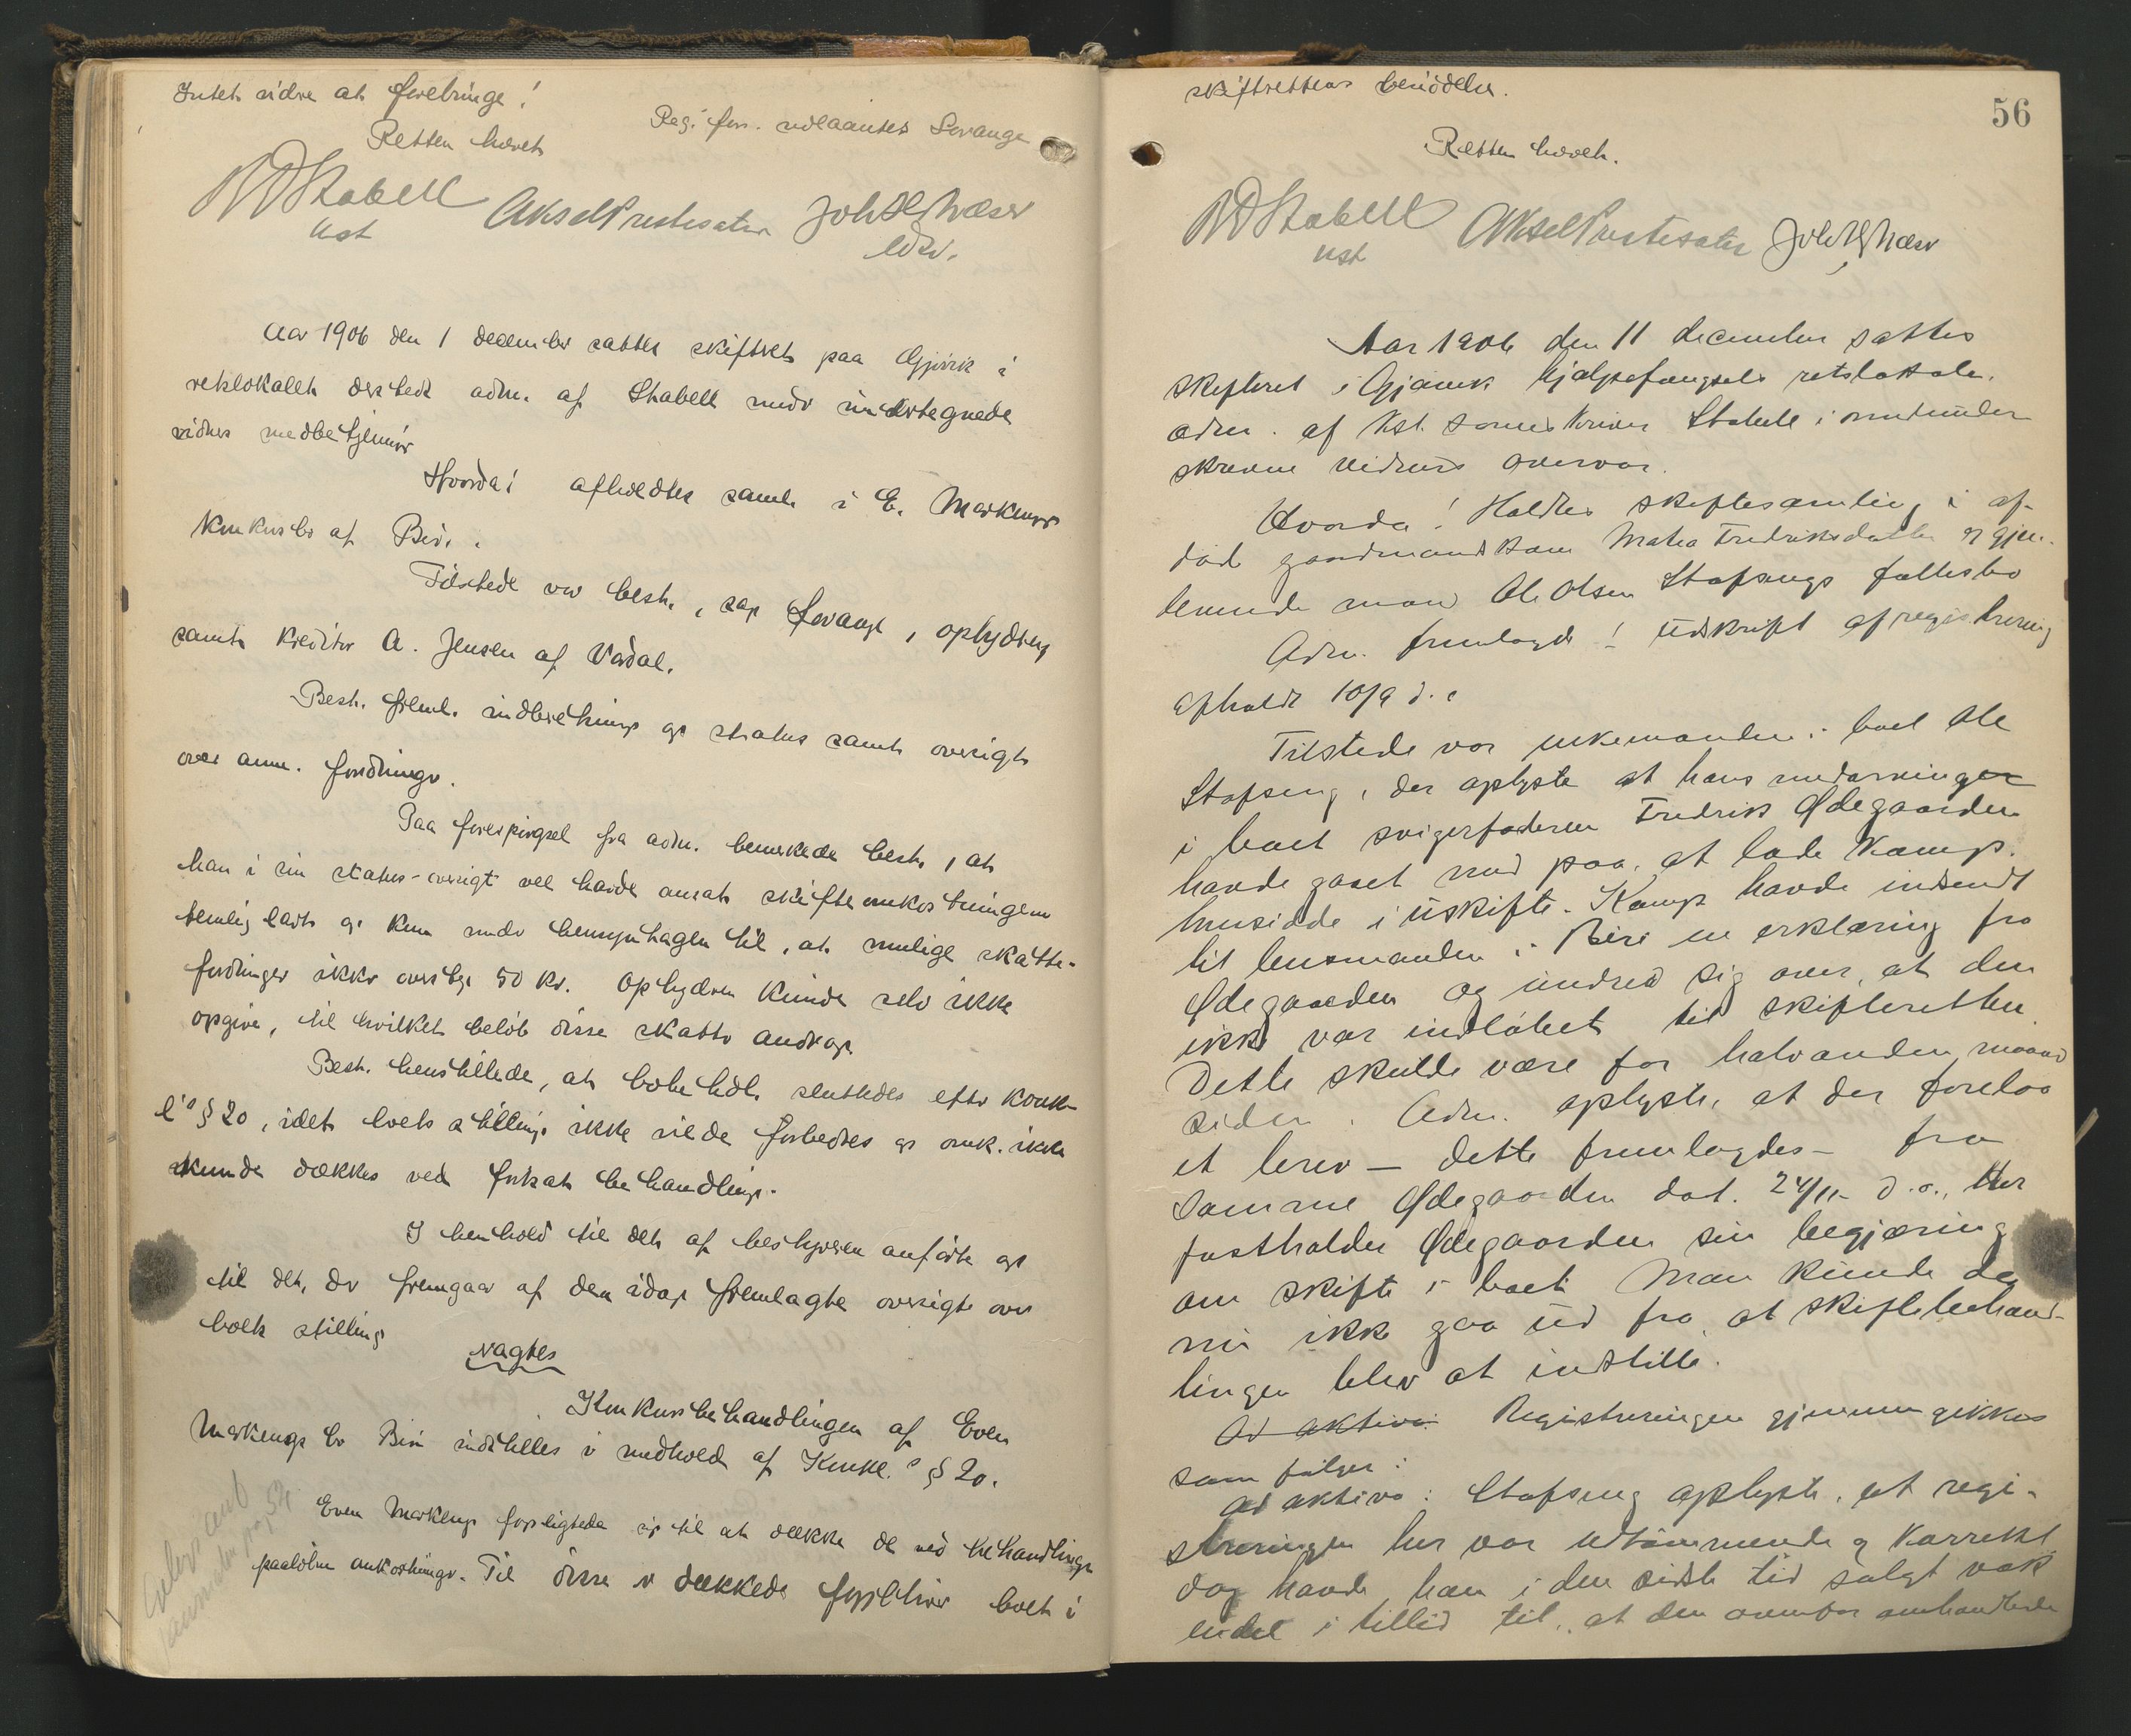 Intet videre at frembringe!
Reg. for. udlaantes Svange
Retten hævet
NDStabell Aksel Prestesater Joh H Næser
kst
edsv.
Aar 1906 den 1 december sattes skifteret paa Gjøvik i
retslokalet dersteds adm. af Stabell med undertegnede
vidners medbetjening
Hvorda! afholdtes saml. i E. Markengs
konkursbo af Biri.
Tilstede var best., sag. Svange, opbydren,
samt kreditor A. Jensen af Vardal.
Best. freml. indberetning og status samt oversigt
over anm. fordringer.
Paa forespørgsel fra adm. bemerkede best., at
han i sin status-oversigt vel havde ansat skifteomkostningerne
temlig lavt og kun under hensyntagen til, at mulige skatte-
fordringer ikke oversteg 50 kr. Opbydren kunde selv ikke
opgive, til hvilket beløb disse skatter androg.
Best. henstillede, at bobehdl. sluttedes efter konk-
l's § 20, idet boets stilling ikke vilde forbedres og omk. ikke
kunde dækkes ved fortsat behandling.
I henhold til det af bestyreren anførte og
til det, der fremgaar af den idag fremlagte oversigt over
boets stilling
vagtes
Konkursbehandlingen af Even
Markengs bo Biri indstilles i medhold af Konkl.s § 20.
Even Markeng forpligtede sig til at dække de ved behandlingen
paaløbne omkostninger. Til disse er dækkede forbliver boet i
56
skifterettens besiddelse.
Retten hævet.
NDStabell Aksel Prestesater Joh H Næser
kst
Aar 1906 den 11 december sattes
skifteret i Gjøvik hjælpefængsels retslokale.
adm. af kst. sorenskriver Stabell i nedenunder
skrevne vidners overvær.
Hvorda! Holdtes skiftesamling i af-
død gaardmandskone Mathea Fredriksdatter og gjen-
levende mand Ole Olsen Stafsengs fællesbo
Adm. fremlagde! Udskrift af registrering
afholdt 10/9 d.a.
Tilstede var enkemanden i boet Ole
Stafseng, der oplyste at hans medarvinger
i boet svigerfaderen Fredrik Ødegaarden
havde gaaet med paa, at lade Komp.
hensidde i uskifte. Komp. havde indsendt
til lensmanden i Biri en erklæring fra
Ødegaarden og undred sig over, at den
ikke var indløbet til skifteretten.
Dette skulde være for halvanden maaned
siden. Adm. oplyste, at der forelaa
et brev – dette fremlagdes – fra
samme Ødegaarden dat. 24/11 d.a., Her
fastholder Ødegaarden sin begjæring
om skifte i boet. Man kunde da
nu ikke gaa ud fra, at skiftebehand-
lingen blev at indstille.
Ad aktiva. Registreringen gjennemgikkes
som følger:
ad aktiva: Stafseng oplyste, at regi-
streringen her var udtømmende og korrekt
dog havde han i den sidste tid solgt væk
endel i tillid til, at den ovenfor omhandlede